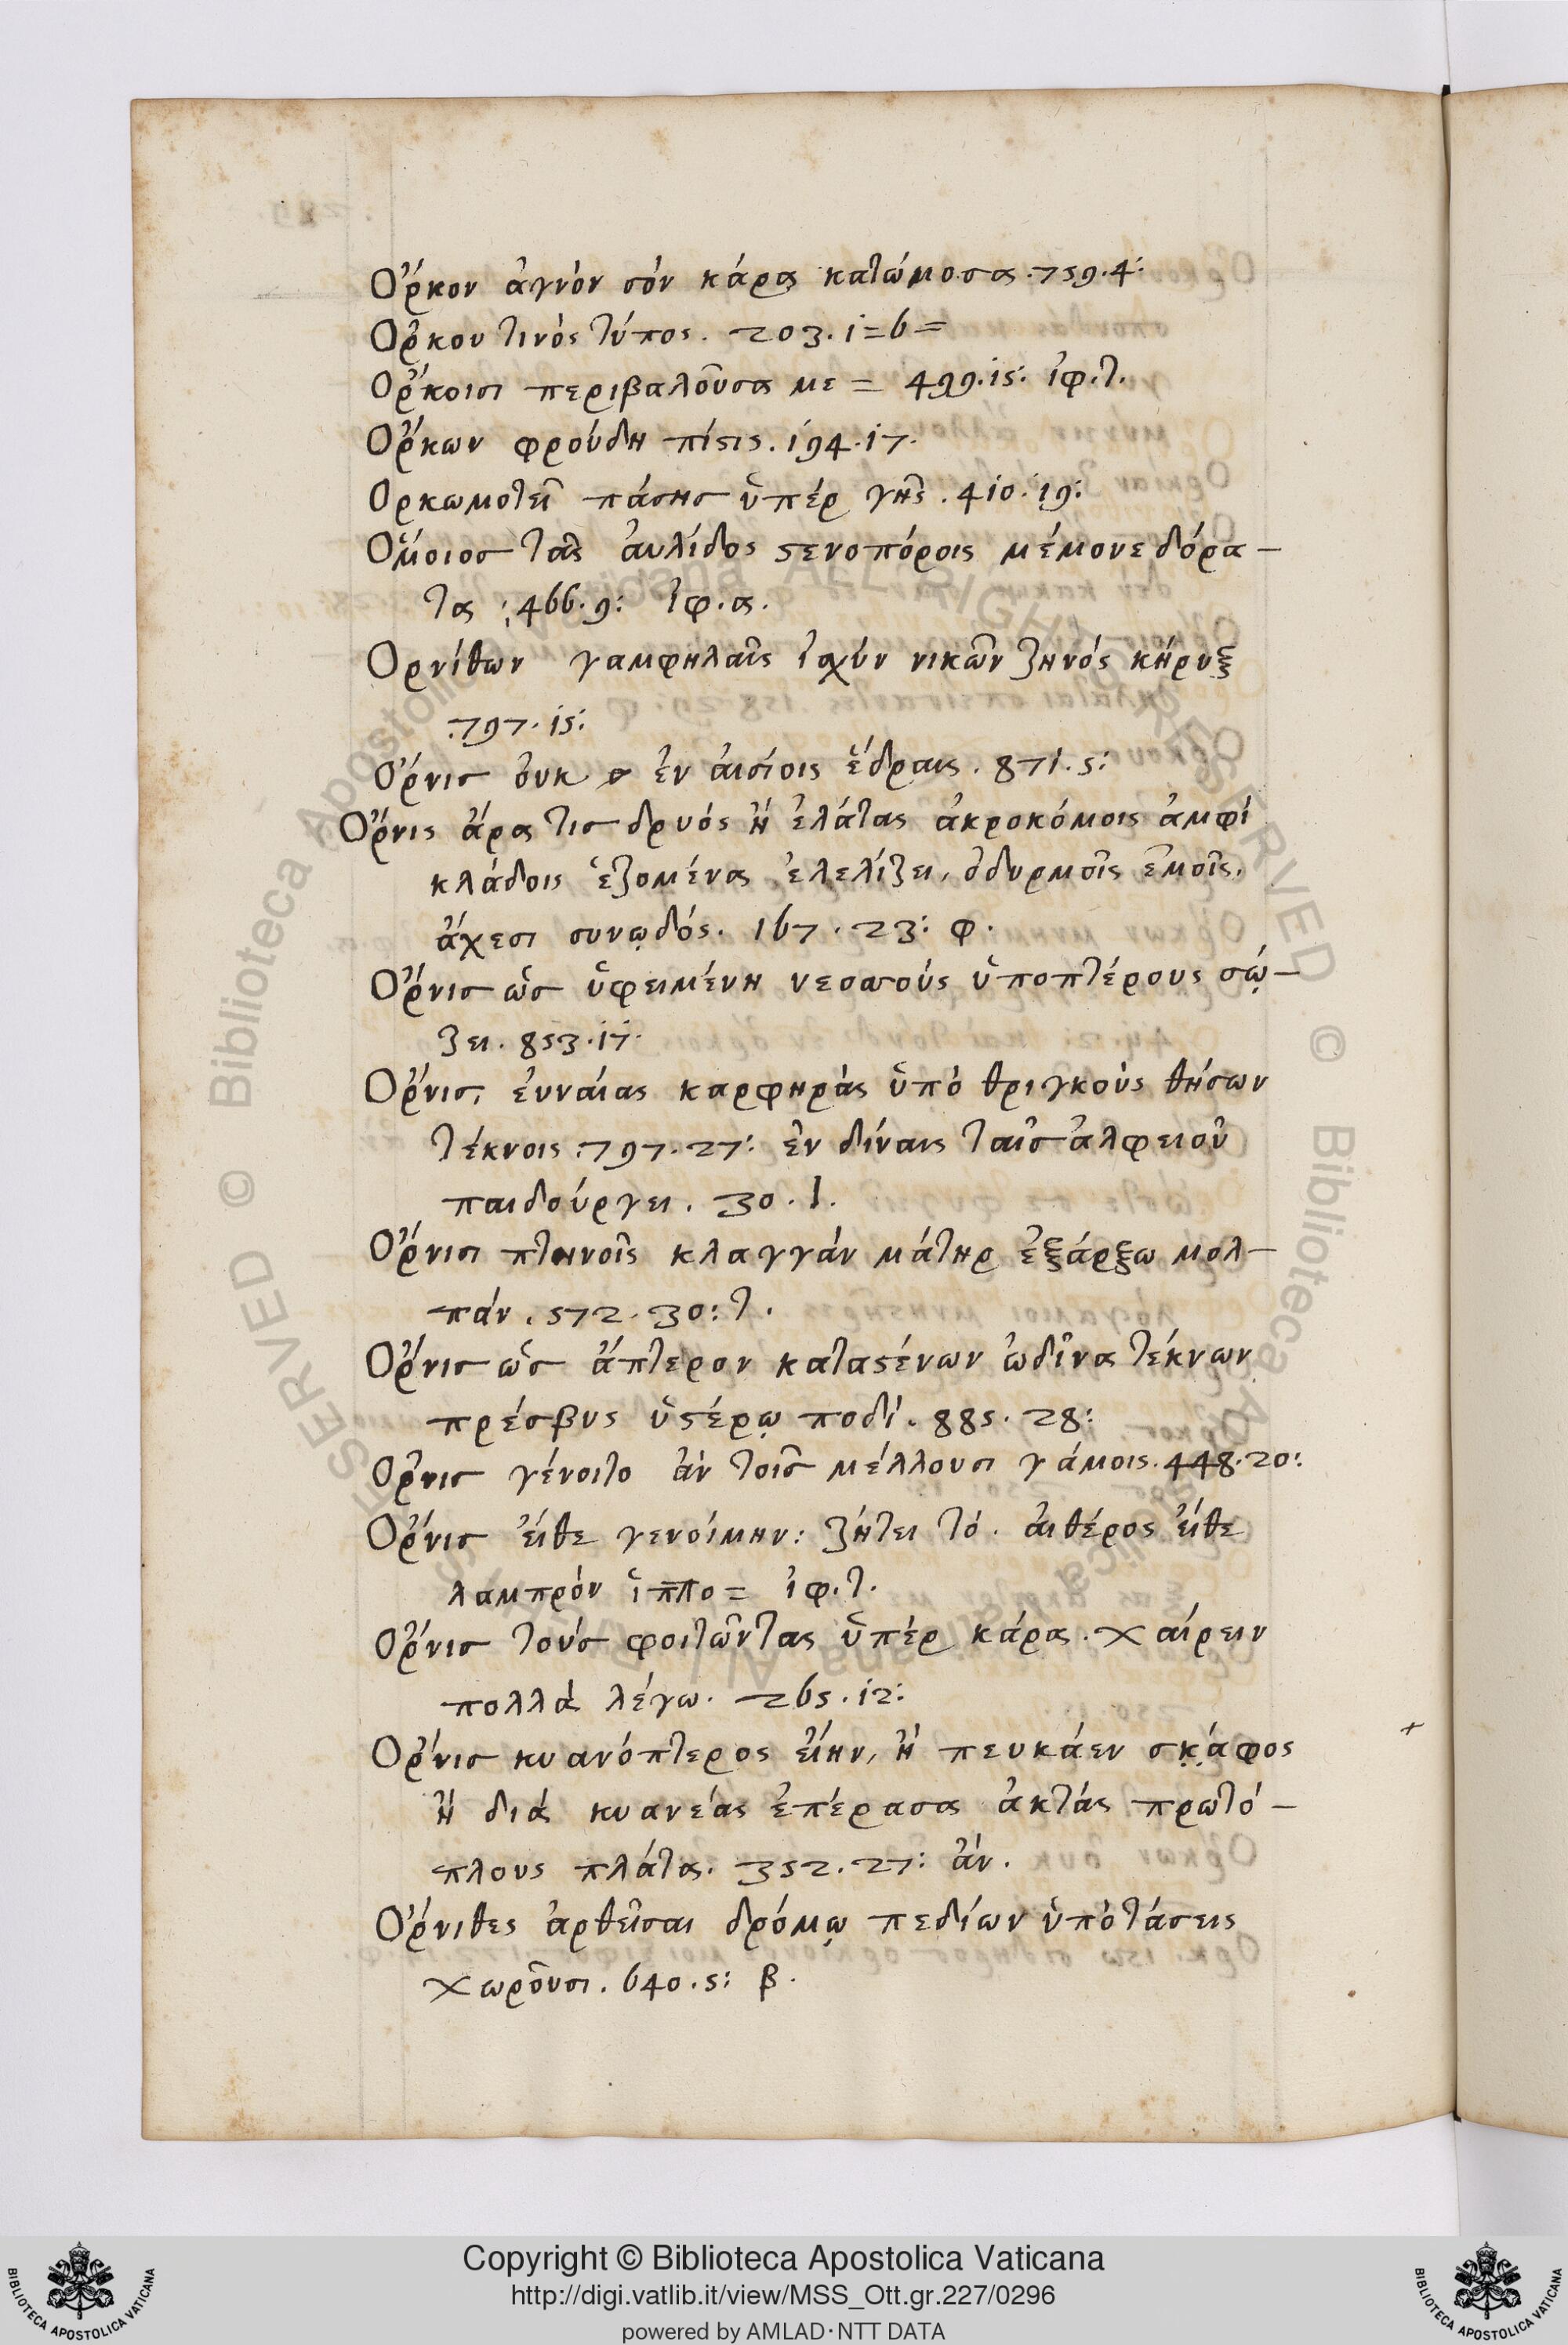 Ὅρκον ἁγνὸν σὸν κάρα κατώμοσα. 759. 4:
Ὅρκου τινὸς τύπος. 203. 1=6=
Ὅρκοισι περιβαλοῦσα με = 499. 15: ἰφ. τ.
Ὅρκων φρούδη πίστις. 194. 17.
Ὁρκωμοτεῖ πάσης ὑπὲρ γῆς. 410. 19:
Ὅμοιος ταῖς ἀυλίδος στενοπόροις μέμονε δόρα-
τα: 466. 9: ἰφ. α.
Ὀρνίθων γαμφηλαῖς ἰσχὺν νικῶν ζηνὸς κήρυξ
.797. 15:
Ὄρνις ὀυκ ἐν ἀισίοις ἕδραις. 871. 5:
Ὄρνις ἄρα τις δρυὸς ἢ ἐλάτας ἀκροκόμοις ἀμφὶ
κλάδοις ἑζομένα ἐλελίζει, ὀδυρμοῖς ἐμοῖς,
ἄχεσι συνῳδός. 167. 23: φ.
Ὄρνις ὡς ὑφειμένη νεοσσοὺς ὑποπτέρους σώ-
ζει. 853. 17.
Ὄρνις, ἐυναίας καρφηρὰς ὑπὸ θριγκοὺς θήσων
τέκνοις. 797. 27: ἐν δίναις ταῖς ἀλφειοῦ
παιδούργει. 30. 1.
Ὄρνισι πτηνοῖς κλαγγὰν μάτηρ ἐξάρξω μολ-
πάν. 572. 30: τ.
Ὄρνις ὡς ἄπτερον καταστένων ὠδῖνα τέκνων
πρέσβυς ὑστέρῳ ποδί. 885. 28:
Ὄρνις γένοιτο ἂν τοῖς μέλλουσι γάμοις. 448. 20:
Ὄρνις ἔιθε γενοίμην: ζήτει τό. ἀιθέρος ἔιθε
λαμπρὸν ἱππο= ἰφ. τ.
Ὄρνις τοὺς φοιτῶντας ὑπὲρ κάρα. χαίρειν
πολλὰ λέγω. 265. 12:
Ὄρνις κυανόπτερος ἔιην, ἢ πευκάεν σκάφος
ἢ διὰ κυανέας ἐπέρασα ἀκτὰς πρωτό-
πλους πλάτα. 352. 27: ἀν.
Ὄρνιθες ἀρθεῖσαι δρόμῳ πεδίων ὑποτάσεις
χωροῦσι. 640. 5: β.
Copyright © Biblioteca Apostolica Vaticana
http://digi.vatlib.it/view/MSS_Ott.gr.227/0296
powered by AMLAD·NTT DATA